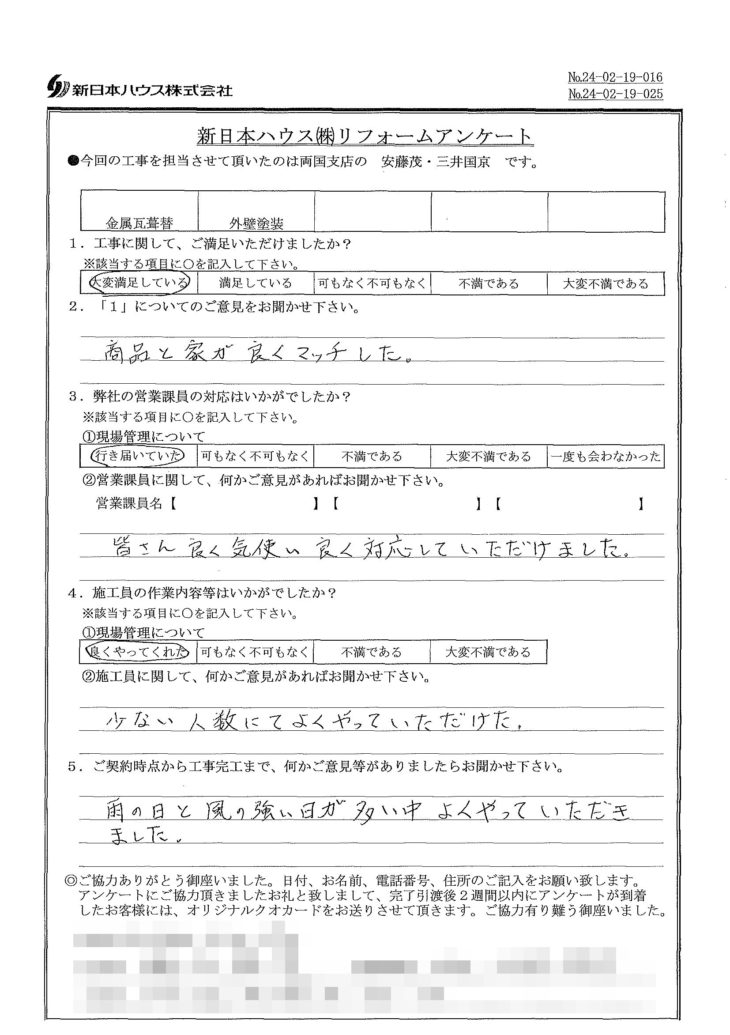 新日本ハウス株式会社
No.24-02-19-016
No.24-02-19-025
新日本ハウス㈱リフォームアンケート
●今回の工事を担当させて頂いたのは両国支店の 安藤茂・三井国京 です。
金属瓦葺替 外壁塗装
1．工事に関して、ご満足いただけましたか？
※該当する項目に○を記入して下さい。
大変満足している 満足している 可もなく不可もなく 不満である 大変不満である
2．「1」についてのご意見をお聞かせ下さい。
商品と家が良くマッチした。
3．弊社の営業課員の対応はいかがでしたか？
※該当する項目に○を記入して下さい。
①現場管理について
行き届いていた 可もなく不可もなく 不満である 大変不満である 一度も会わなかった
②営業課員に関して、何かご意見があればお聞かせ下さい。
営業課員名【 】【 】【 】
皆さん良く気使い良く対応していただけました。
4．施工員の作業内容等はいかがでしたか？
※該当する項目に○を記入して下さい。
①現場管理について
良くやってくれた 可もなく不可もなく 不満である 大変不満である
②施工員に関して、何かご意見があればお聞かせ下さい。
少ない人数にてよくやっていただけた。
5．ご契約時点から工事完工まで、何かご意見等がありましたらお聞かせ下さい。
雨の日と風の強い日が多い中よくやっていただき
ました。
◎ご協力ありがとう御座いました。日付、お名前、電話番号、住所のご記入をお願い致します。
アンケートにご協力頂きましたお礼と致しまして、完了引渡後２週間以内にアンケートが到着
したお客様には、オリジナルクオカードをお送りさせて頂きます。ご協力有り難う御座いました。